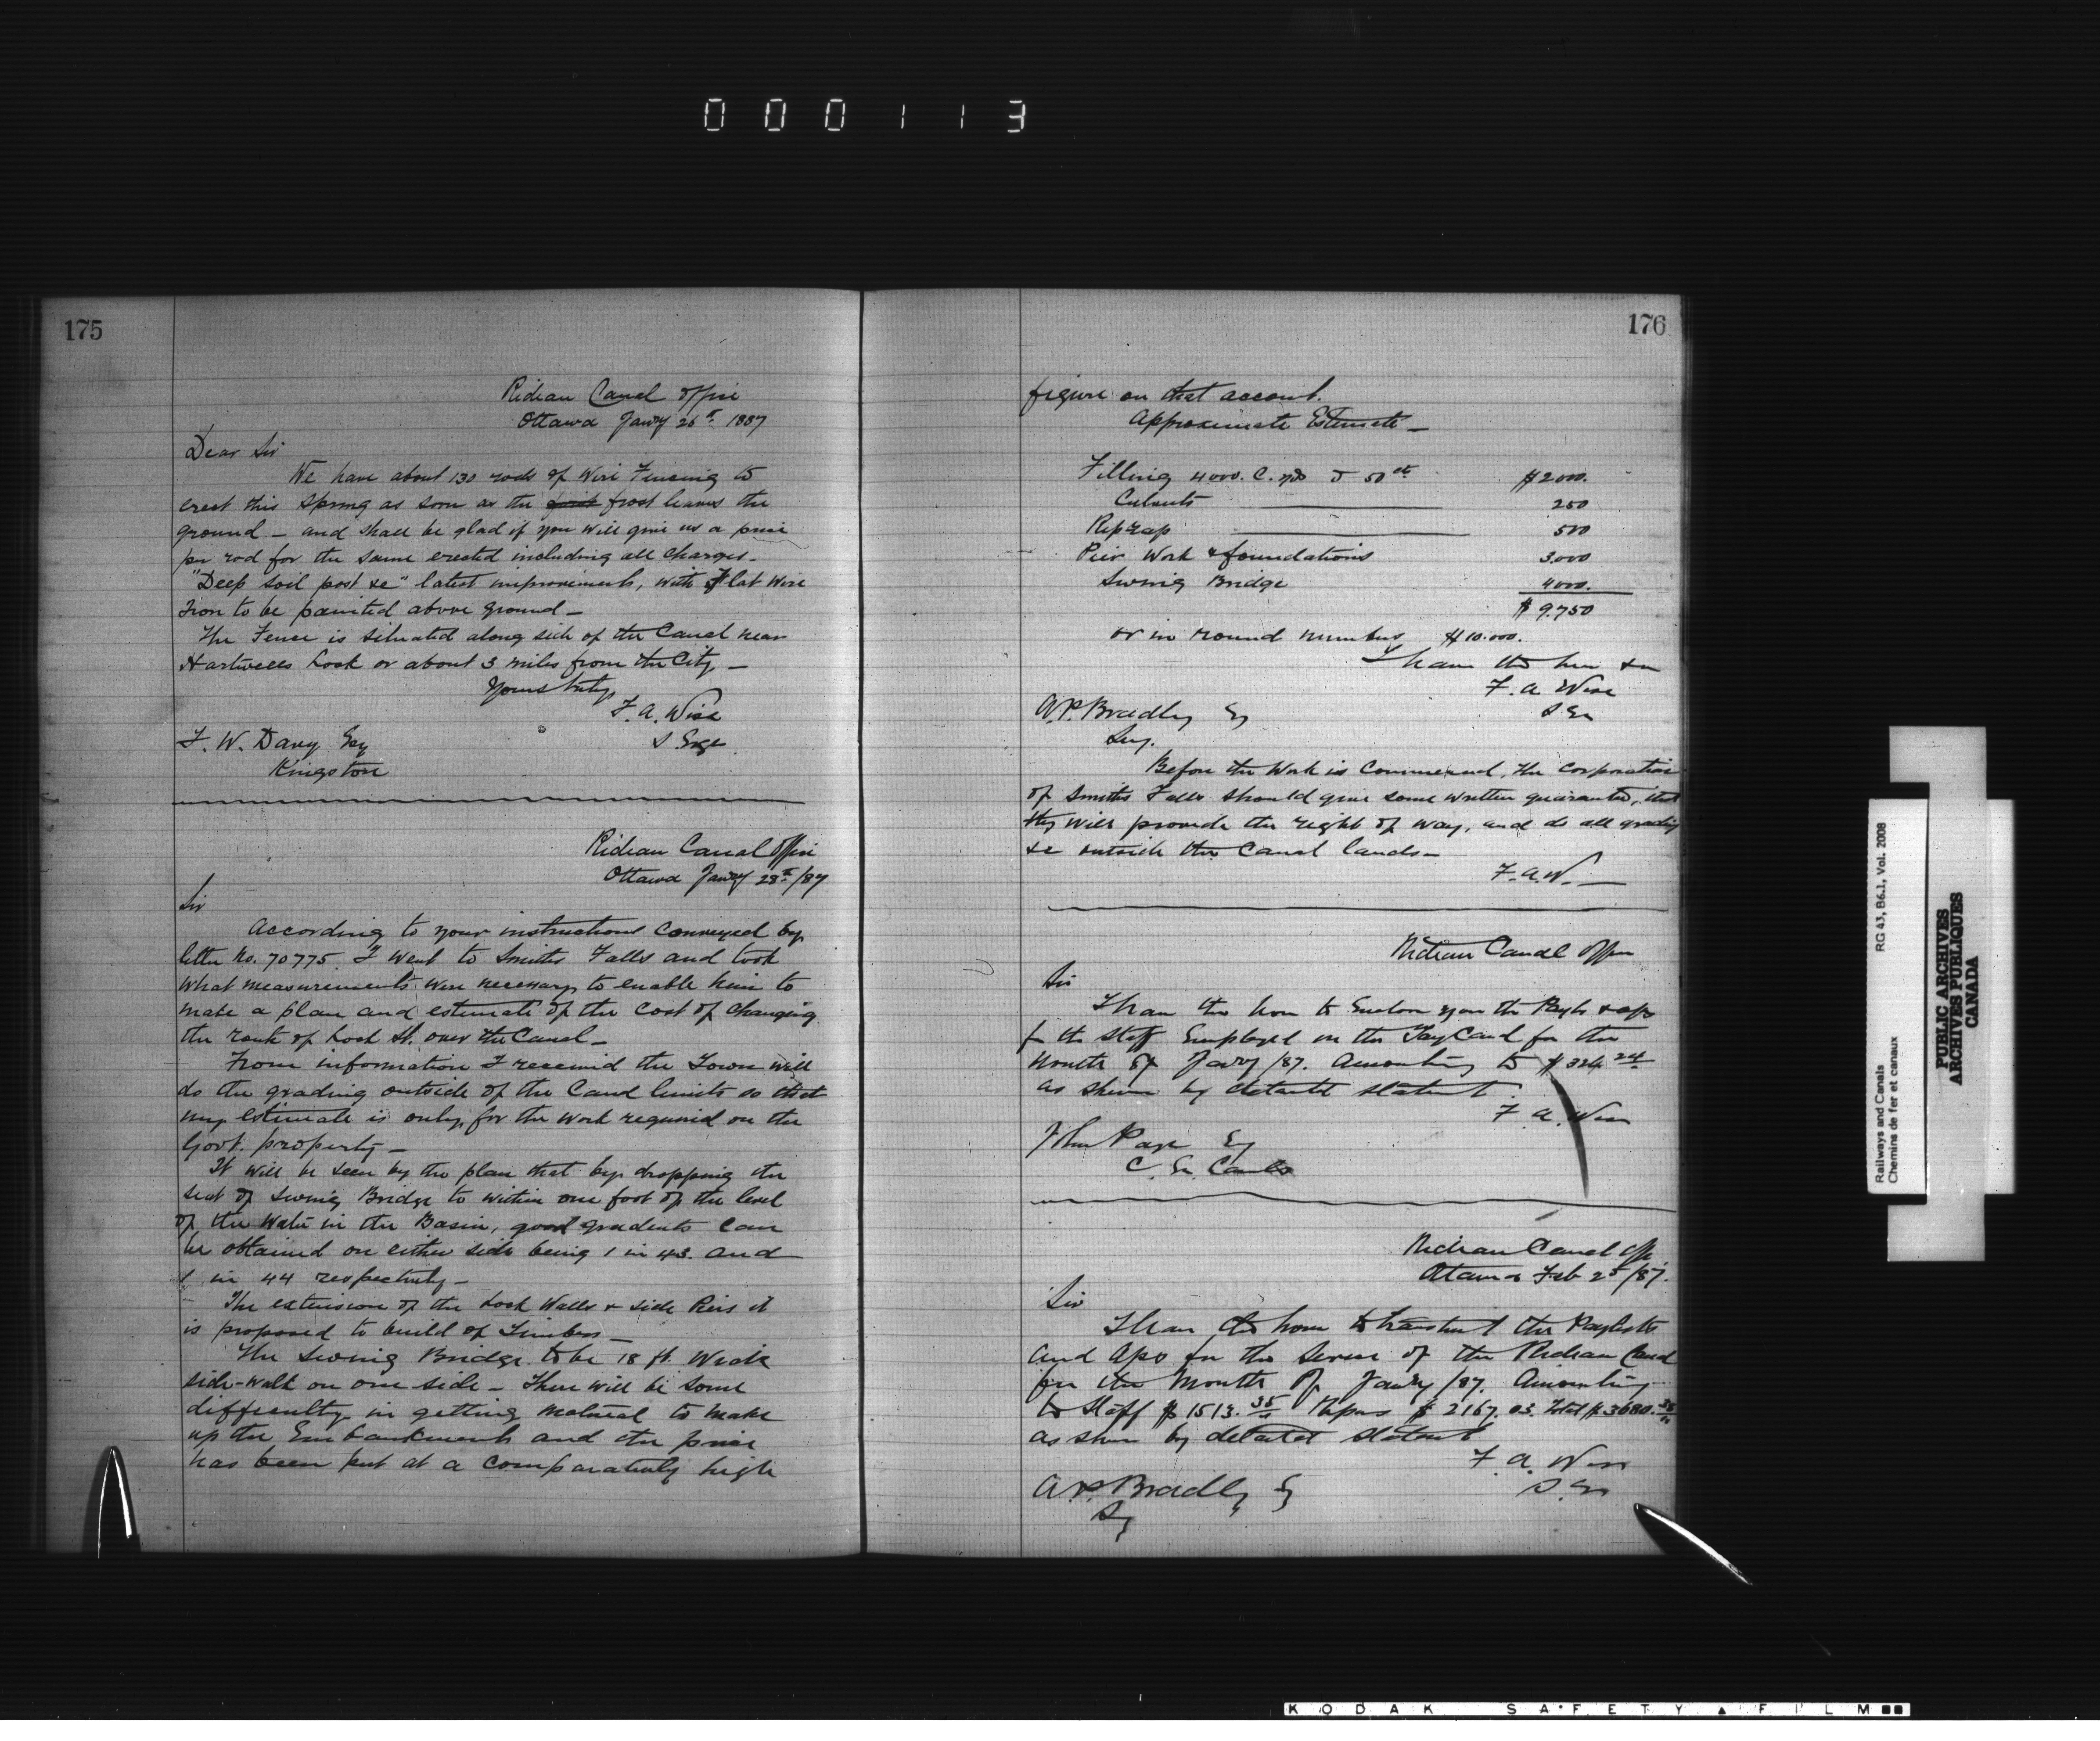 000113
175
Rideau Canal Office
Ottawa Janry 26th 1887
Dear Sir
We have about 130 rods of Wire Fencing to
erect this Spring as soon as the frost leaves the
ground – and shall be glad if you will give us a price
per rod for the same erected including all charges –
"Deep soil post &c" latest improvements, with Flat Wire
Iron to be painted above ground –
The Fence is situated along side of the Canal near
Hartwells Lock or about 3 miles from the City –
Yours truly
F. A. Wise
S Enge
F. W. Davy Esq
Kingston
Rideau Canal Office
Ottawa Janry 28th /87
Sir
According to your instructions conveyed by
letter No. 70775. I went to Smiths Falls and took
what measurements were necessary to enable him to
make a plan and estimate of the cost of changing
the route of Lock St. over the Canal –
From information I received the Town will
do the grading outside of the Canal limits so that
my estimate is only for the work required on the
Govt. property –
It will be seen by the plan that by dropping the
seat of Swing Bridge to within one foot of the level
of the Water in the Basin, good gradients can
be obtained on either side being 1 in 43. and
1 in 44 respectively –
The extension of the Lock Walls & side Piers it
is proposed to build of Timber –
The Swing Bridge to be 18 ft. Wide
side-walk on one side – There will be some
difficulty in getting material to make
up the Embankment and the price
has been put at a comparatively high
176
figure on that account.
Approximate Estimate –
Filling 4000. C. yds @ 50 cts $2000.
Culverts 250
Rip rap 500
Pier Work & foundations 3.000
Swing Bridge 4000.
$ 9.750
or in round numbers $10.000.
I have the hon &c
F. A. Wise
S En
A. P. Bradley Eq
Secy.
Before the Work is Commenced, the Corporation
of Smiths Falls should give some written guarantee, that
they will provide the right of way, and do all grading
&c outside the Canal lands –
F. A. W. –
Rideau Canal Office
Sir
I have the hon to Enclose you the Paylt & aps
for the Staff Employed on the Tay Canal for the
Month of Janry /87. Amounting to $324 24
as shewn by detailed statement
F. A. Wise
John Page Eq
C. En. Canals
Rideau Canal Offe
Ottawa Feb 2d /87.
Sir
I have the honor to transmit the Paylists
and Aps for the Service of the Rideau Canal
for the Month of Janry /87. Amounting
to Staff $1513. 35 Repairs $ 2167. 03. Total $3680. 38
as shewn by detailed statement
F. A. Wise
S. En
A. P. Bradley Eq
Sy
Railways and Canals RG 43, B6.1, Vol. 2008
Chemins de fer et canaux
PUBLIC ARCHIVES
ARCHIVES PUBLIQUES
CANADA
KODAK SAFETY ▲ FILM